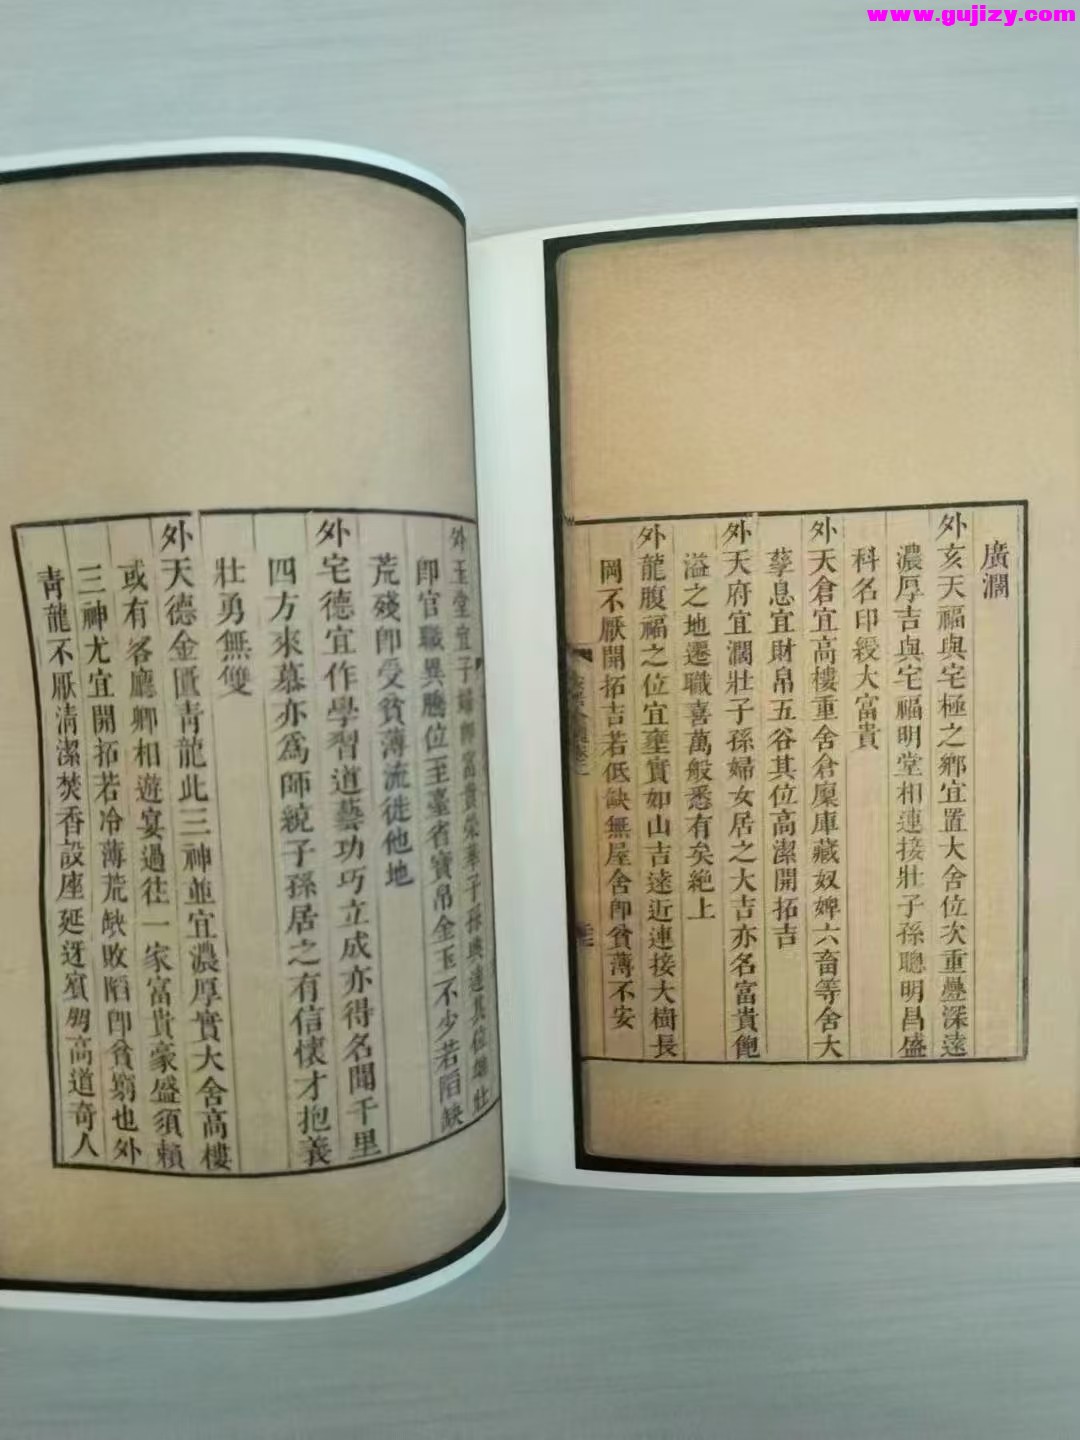 www.gujizy.com
廣濶
外亥天福與宅極之鄉宜置大舍位次重疊深遠
濃厚吉與宅福明堂相連接壯子孫聰明昌盛
科名印綬大富貴
外天倉宜高樓重舍倉廩庫藏奴婢六畜等舍大
孳息宜財帛五谷其位高潔開拓吉
外天府宜濶壯子孫婦女居之大吉亦名富貴飽
溢之地遷職喜萬般悉有矣絶上
外龍腹福之位宜壅實如山吉遠近連接大樹長
岡不厭開拓吉若低缺無屋舍卽貧薄不安
外玉堂宜子婦卽富貴榮華子孫興達其位雄壯
卽官職異騰位至臺省寶帛金玉不少若陷缺
荒殘卽受貧薄流徙他地
外宅德宜作學習道藝功巧立成亦得名聞千里
四方來慕亦爲師統子孫居之有信懷才抱義
壯勇無雙
外天德金匱靑龍此三神並宜濃厚實大舍高樓
或有客廳卿相遊宴過往一家富貴豪盛須賴
三神尤宜開拓若冷薄荒缺敗陷卽貧窮也外
靑龍不厭清潔焚香設座延迓賓朋高道奇人